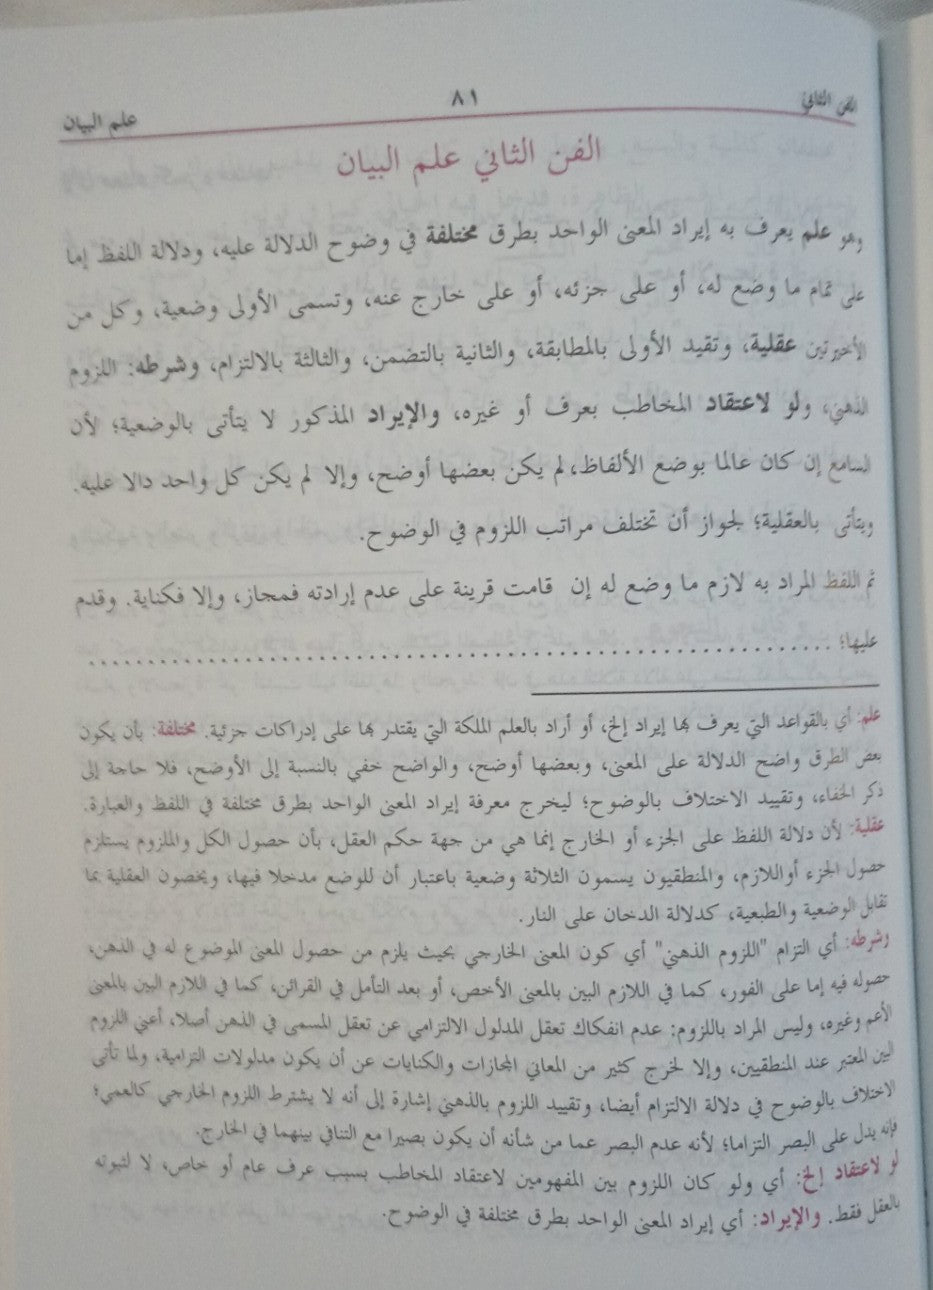 الفن الثاني ٨١ علم البيان
الفن الثاني علم البيان
وهو علم يعرف به إيراد المعنى الواحد بطرق مختلفة في وضوح الدلالة عليه، ودلالة اللفظ إما
على تمام ما وضع له، أو على جزئه، أو على خارج عنه، وتسمى الأولى وضعية، وكل من
الأخيرتين عقلية، وتقيد الأولى بالمطابقة، والثانية بالتضمن، والثالثة بالالتزام، وشرطه: اللزوم
الذهني، ولو لاعتقاد المخاطب بعرف أو غيره، والإيراد المذكور لا يتأتى بالوضعية؛ لأن
السامع إن كان عالما بوضع الألفاظ، لم يكن بعضها أوضح، وإلا لم يكن كل واحد دالا عليه.
ويتأتى بالعقلية؛ لجواز أن تختلف مراتب اللزوم في الوضوح.
ثم اللفظ المراد به لازم ما وضع له إن قامت قرينة على عدم إرادته فمجاز، وإلا فكناية. وقدم
عليها؛ ............................................................
علم: أي بالقواعد التي يعرف بها إيراد إلخ، أو أراد بالعلم الملكة التي يقتدر بها على إدراكات جزئية. مختلفة: بأن يكون
بعض الطرق واضح الدلالة على المعنى، وبعضها أوضح، والواضح خفي بالنسبة إلى الأوضح، فلا حاجة إلى
ذكر الخفاء، وتقييد الاختلاف بالوضوح؛ ليخرج معرفة إيراد المعنى الواحد بطرق مختلفة في اللفظ والعبارة.
عقلية: لأن دلالة اللفظ على الجزء أو الخارج إنما هي من جهة حكم العقل، بأن حصول الكل والملزوم يستلزم
حصول الجزء أو اللازم، والمنطقيون يسمون الثلاثة وضعية باعتبار أن للوضع مدخلا فيها، ويخصون العقلية بما
تقابل الوضعية والطبعية، كدلالة الدخان على النار.
وشرطه: أي التزام "اللزوم الذهني" أي كون المعنى الخارجي بحيث يلزم من حصول المعنى الموضوع له في الذهن،
حصوله فيه إما على الفور، كما في اللازم البين بالمعنى الأخص، أو بعد التأمل في القرائن، كما في اللازم البين بالمعنى
الأعم وغيره، وليس المراد باللزوم: عدم انفكاك تعقل المدلول الالتزامي عن تعقل المسمى في الذهن أصلا، أعني اللزوم
البين المعتبر عند المنطقيين، وإلا لخرج كثير من المعاني المجازات والكنايات عن أن يكون مدلولات التزامية، ولما تأتى
الاختلاف بالوضوح في دلالة الالتزام أيضا، وتقييد اللزوم بالذهني إشارة إلى أنه لا يشترط اللزوم الخارجي كالعمي؛
فإنه يدل على البصر التزاما؛ لأنه عدم البصر عما من شأنه أن يكون بصيرا مع التنافي بينهما في الخارج.
لو لاعتقاد إلخ: أي ولو كان اللزوم بين المفهومين لاعتقاد المخاطب بسبب عرف عام أو خاص، لا لثبوته
بالعقل فقط. والإيراد: أي إيراد المعنى الواحد بطرق مختلفة في الوضوح.